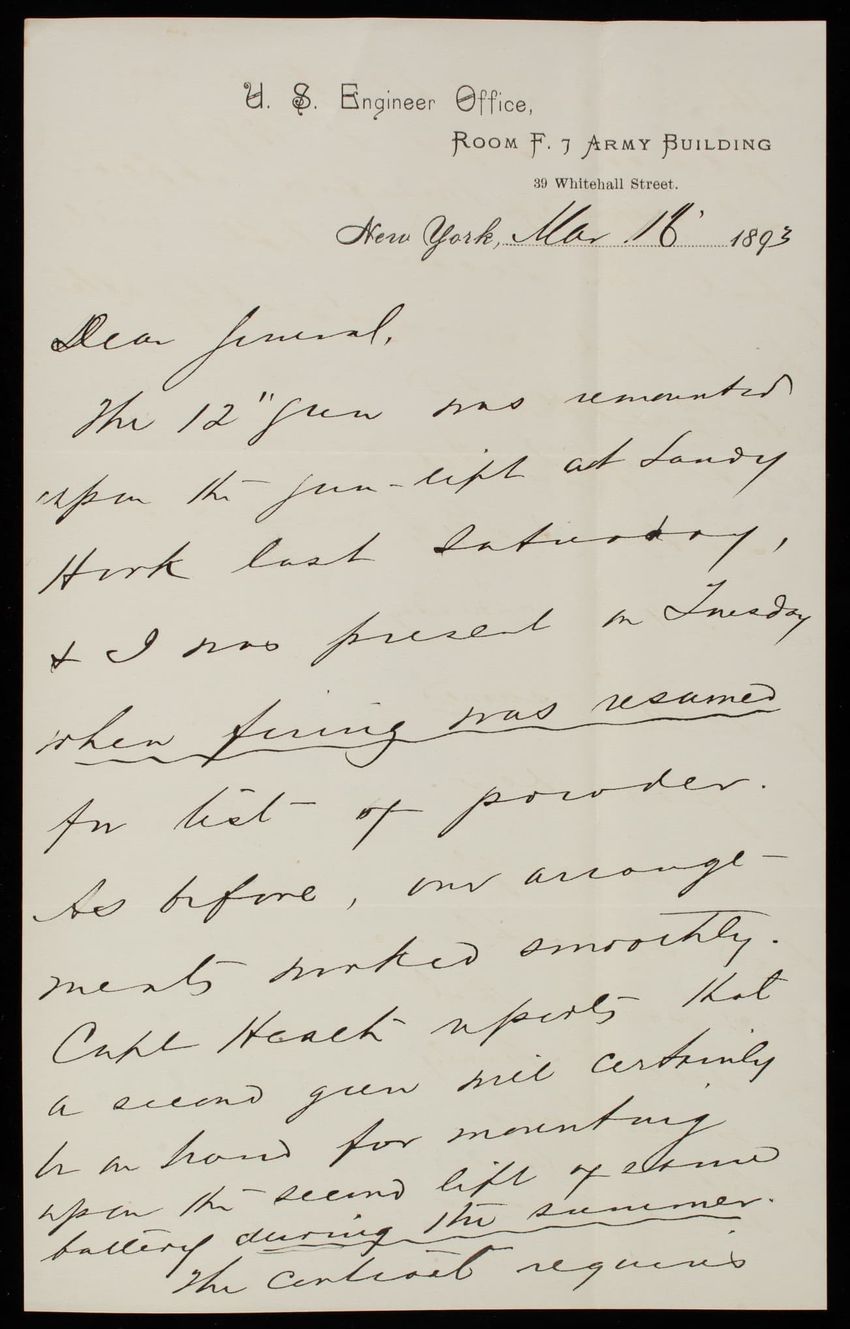 U. S. Engineer Office,
Room F. 7 Army Building
39 Whitehall Street.
New York, Mar 16' 1893
Dear General,
The 12" gun was remounted
upon the gun-lift at Sandy
Hook last Saturday,
& I was present on Tuesday
when firing was resumed
for test of powder.
As before, our arrange-
ments worked smoothly.
Capt Heath reports that
a second gun will certainly
be on hand for mounting
upon the second lift of same
battery during the summer.
The contract requires